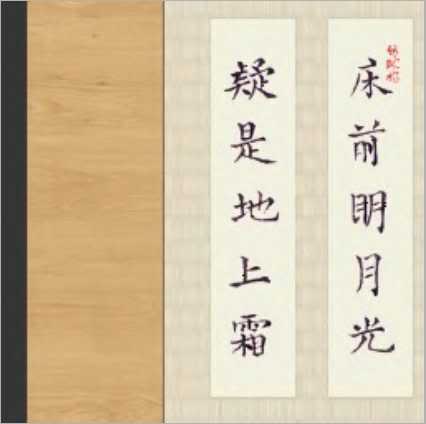 床前明月光
疑是地上霜